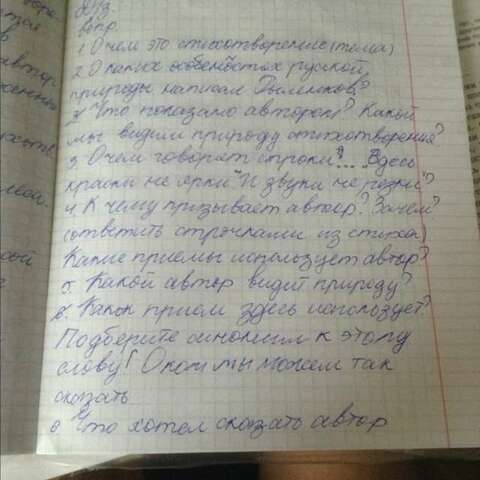 Д/З.
вопр.
1 О чем это стихотворение (тема)
2. О каких особеностях русской
природы написал Рыленков?
Что показано автором? Какой
мы видим природу стихотворения?
3 О чем говорят строки? .... Здесь
краски не ярки" И звуки не резки"?
4 К чему призывает автор? Зачем?
(ответить строчками из стиха)
Какие приемы использует автор?
5. Какой автор видит природу?
Какой прием здесь использует?
Подберите синоним к этому
слову! О ком мы можем так
сказать
Что хотел сказать автор